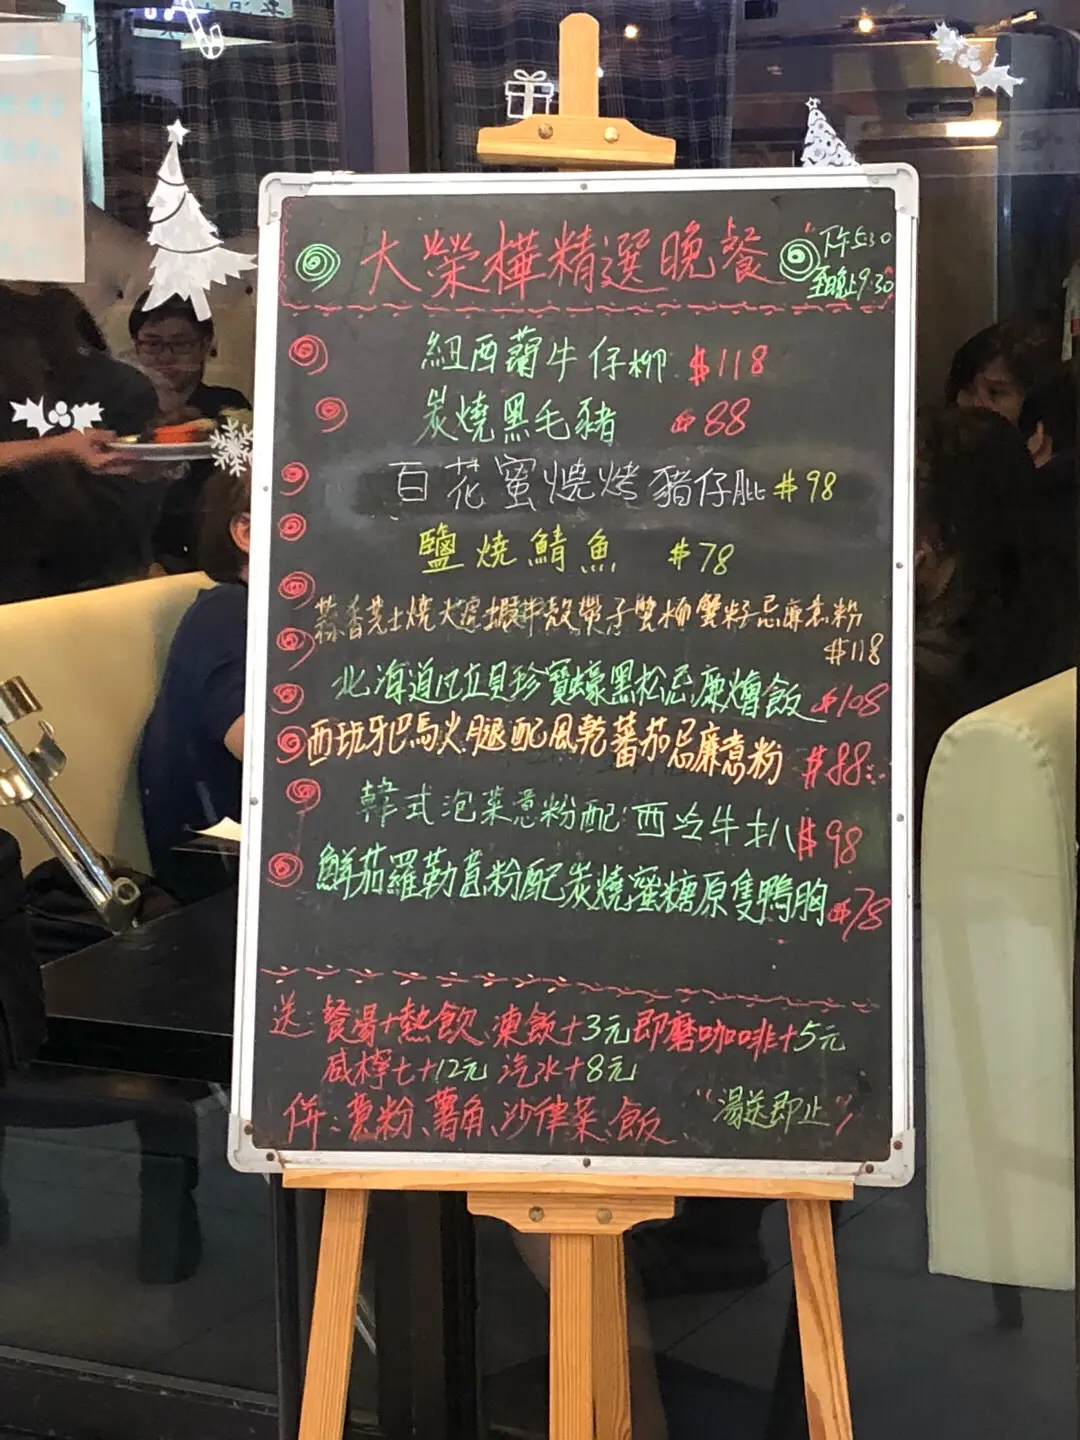 大榮樺精選晚餐
下午5:30
至晚上9:30
紐西蘭牛仔柳 $118
炭燒黑毛豬 $88
百花蜜燒烤豬仔肶 $98
鹽燒鯖魚 $78
蒜香芝士燒大虎蝦半殼帶子蟹柳蟹籽忌廉意粉
$118
北海道帆立貝珍寶蠔黑松忌廉燴飯 $108
西班牙巴馬火腿配風乾蕃茄忌廉意粉 $88
韓式泡菜意粉配西冷牛扒 $98
鮮茄羅勒意粉配炭燒蜜糖原隻鴨胸 $78
送:餐湯+熱飲、凍飲+3元即磨咖啡+5元
咸檸七+12元 汽水+8元
併:意粉、薯角、沙律菜、飯
"湯送即止"